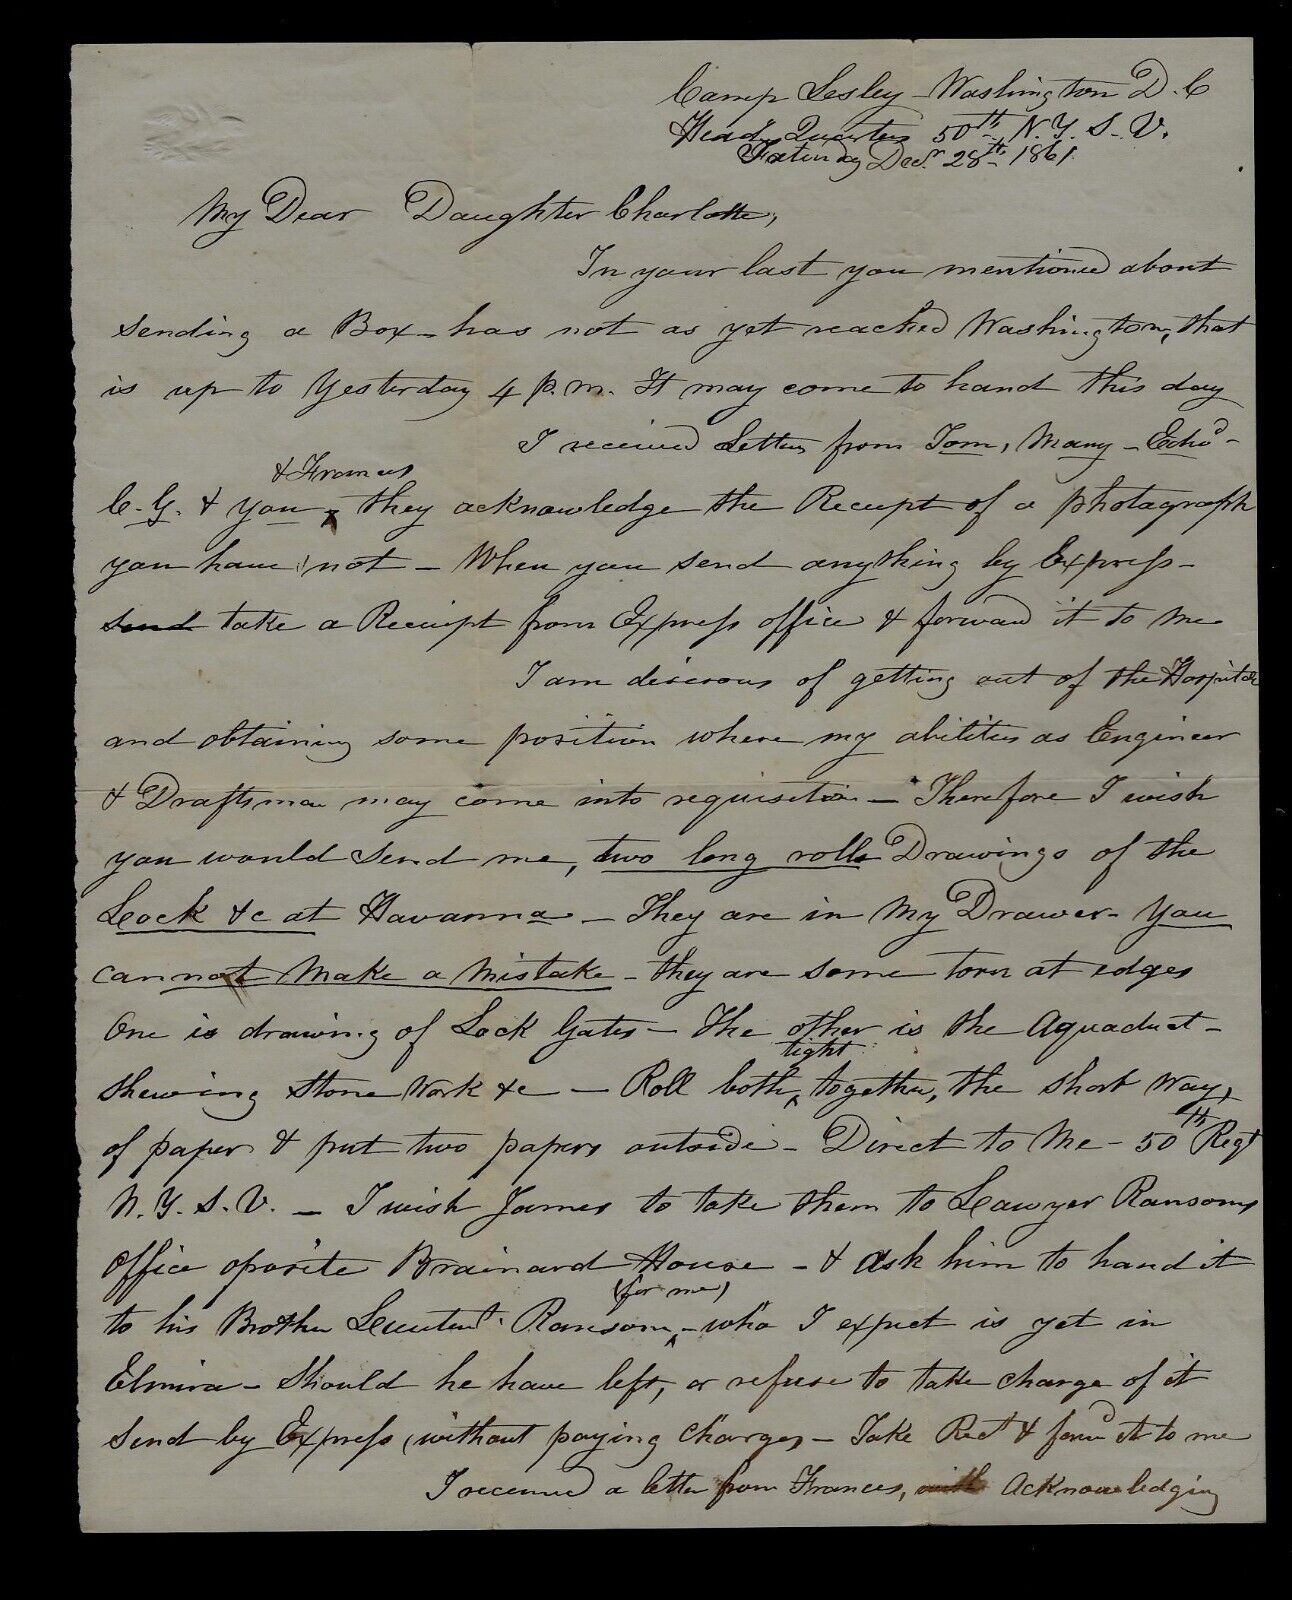 Camp Lesley - Washington D. C
Head Quarters 50th N. Y. S. V.
Saturday Decr. 28th 1861
My Dear Daughter Charlotte,
In your last you mentioned about
sending a Box - has not as yet reached Washington, that
is up to Yesterday 4 p.m. It may come to hand this day
I received Letters from Tom, Mary - Echd -
& Frances
C. G. & you ‸ they acknowledge the Receipt of a photagraph
you have not - When you send anything by Express -
send take a Receipt from Express office & forward it to me
I am desirous of getting out of the Hospital
and obtaining some position where my abilities as Engineer
& Draftsman may come into requisition - Therefore I wish
you would send me, two long rolls Drawings of the
Lock &c at Havanna - They are in My Drawer - You
cannot Make a Mistake - they are some torn at edges
One is drawing of Lock Gates - The other is the Aquaduct -
tight
shewing Stone Work &c - Roll both ‸ together, the short way,
of paper & put two papers outside - Direct to Me - 50th Regt
N. Y. S. V. - I wish James to take them to Lawyer Ransoms
Office oposite Brainard House - & Ask him to hand it
(for me)
to his Brother Lieutent. Ransom ‸ - who I expect is yet in
Elmira - Should he have left, or refuse to take charge of it
Send by Express, without paying Charges - Take Rect & forwd it to me
I received a letter from Frances, with Acknowledging